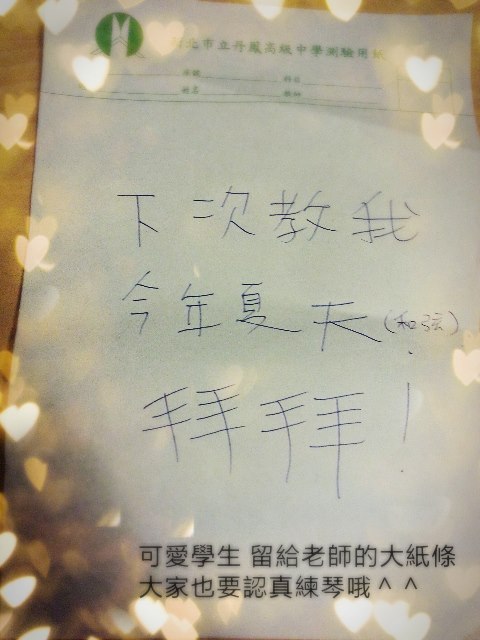 新北市立丹鳳高級中學測驗用紙
座號 科目
姓名 教師
下次教我
今年夏天(和弦)
拜拜!
可愛學生 留給老師的大紙條
大家也要認真練琴哦^ ^